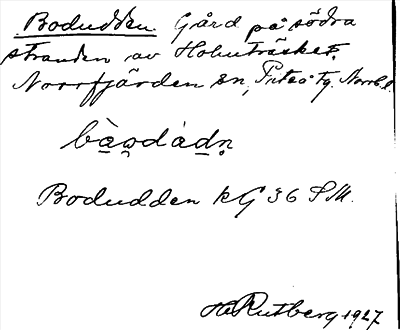 Bodudden. Gård på södra
stranden av Holmträsket.
Norrfjärden sn, Piteå tg. Norrb. l.
Bodudden kG 36 S.M.
H Rutberg 1927